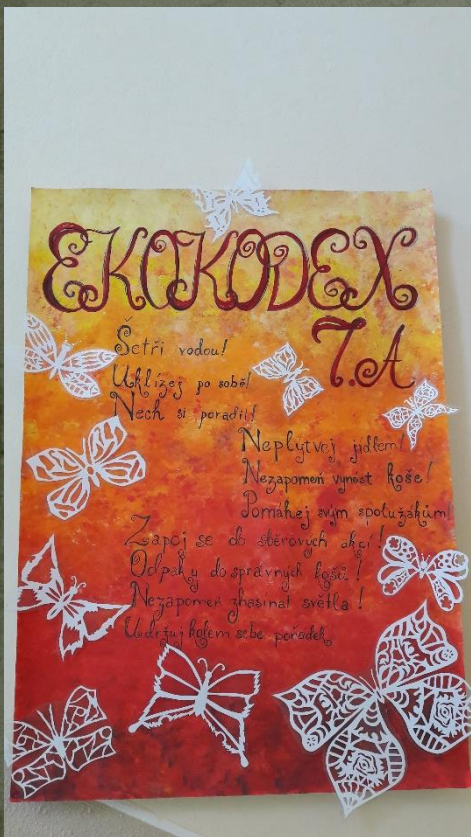 EKOKODEX
7.A
Šetři vodou!
Uklízej po sobě!
Nech si poradit!
Neplýtvej jídlem!
Nezapomeň vynést koše!
Pomáhej svým spolužákům!
Zapoj se do sběrových akcí!
Odpaky do správných košů!
Nezapomeň zhasínat světla!
Udržuj kolem sebe pořádek